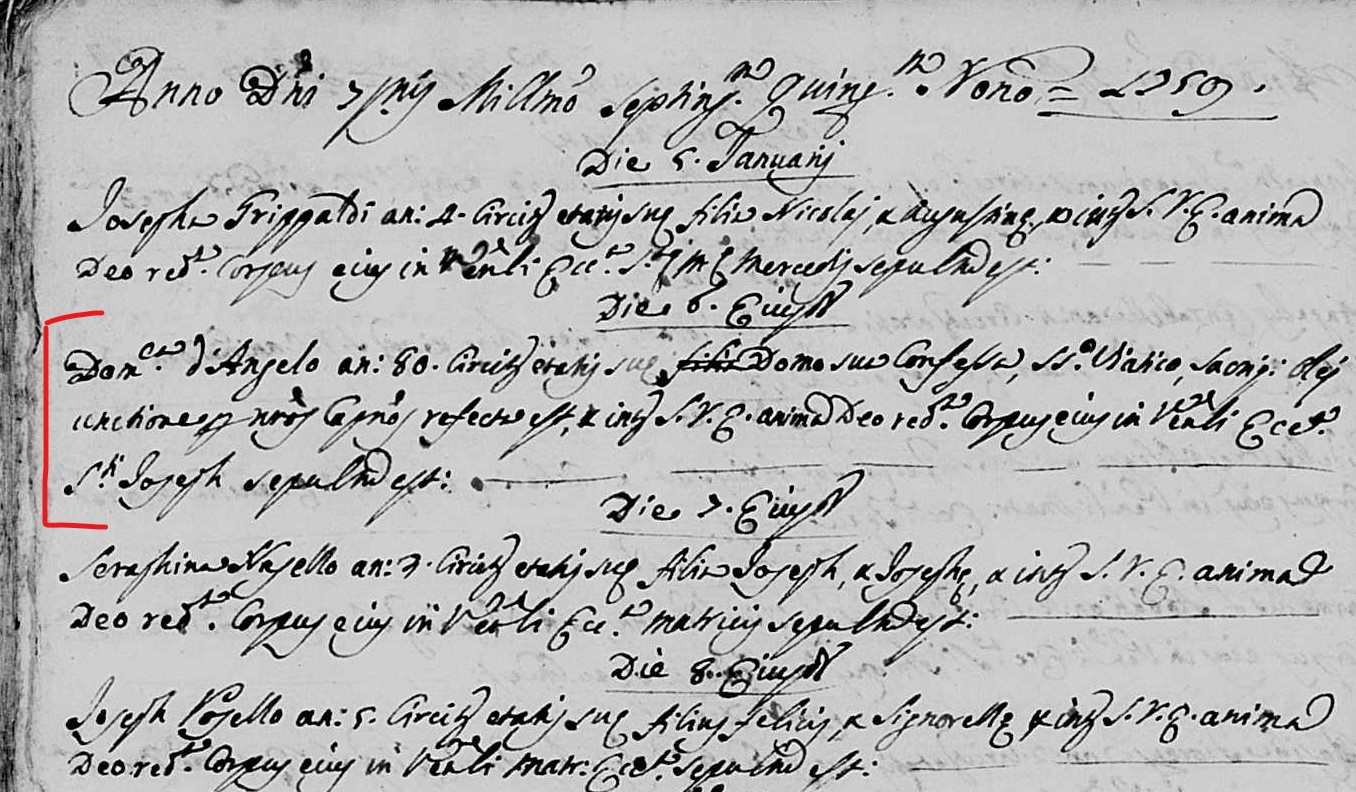 Anno Dñi 7 Ind.nis Millmo septing.mo quinq.mo Nono = 1759.
Die 5. Januarij
Josepha Grippaldi an: 4. Circiter etatis sue filia Nicolaj, et Augustine, in S. V. E. anima
Deo red.t Corpus eius in Ven.li Ecc.a Mercedis sepultum est:
Die 6. Eiusd
Dom.ca d'Angelo an: 80. Circiter etatis sue Domo sua Confessa, SS.o Viatico, sacriq: olej
unctione refecta est, et in S. V. E. anima Deo red.t Corpus eius in Ven.li Ecc.a
S.ti Joseph sepultum est:
Die 7. Eiusd
Seraphina Nasello an: 3. Circiter etatis sue filia Joseph, et Josephe, et in S. V. E. anima
Deo red.t Corpus eius in Ven.li Ecc.a matricis sepultum est:
Die 8. Eiusd
Joseph an: 5. Circiter etatis sue filius felicis, et Signorelle et in S. V. E. anima
Deo red.t Corpus eius in Ven.li Matr: Ecc.a sepultum est: